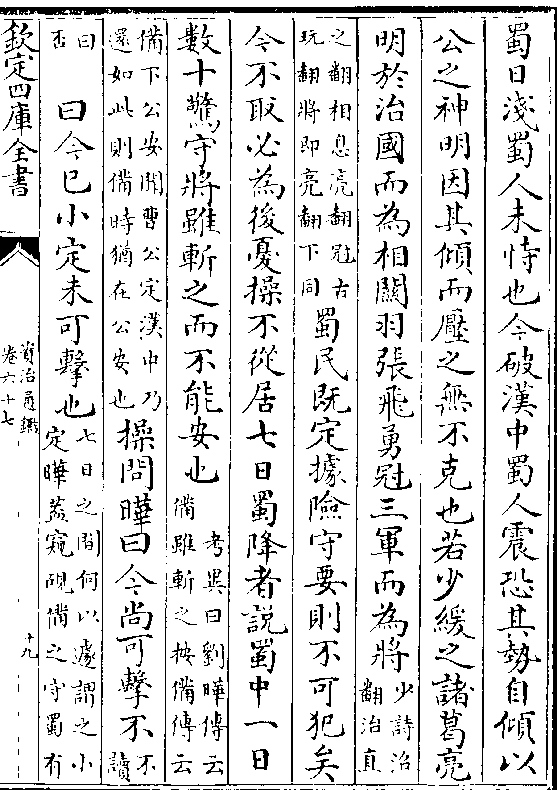 蜀日淺蜀人未恃也今破漢中蜀人震恐其勢自傾以
公之神明因其傾而壓之無不克也若少緩之諸葛亮
明於治國而為相闗羽張飛勇冠三軍而為將少詩沼翻治直
之翻相息亮翻冠古玩翻將即亮翻下同蜀民既定據險守要則不可犯矣
今不取必為後憂操不從居七日蜀降者說蜀中一日
數十驚守將雖斬之而不能安也考異曰劉曄傳云備雖斬之按備傳云
備下公安聞曹公定漢中乃還如此則備時猶在公安也操問曄曰今尚可擊不不讀
曰否曰今已小定未可擊也七日之間何以遽謂之小定曄葢窺覘備之守蜀有
欽定四庫全書
資治通鑑
卷六十七
十九